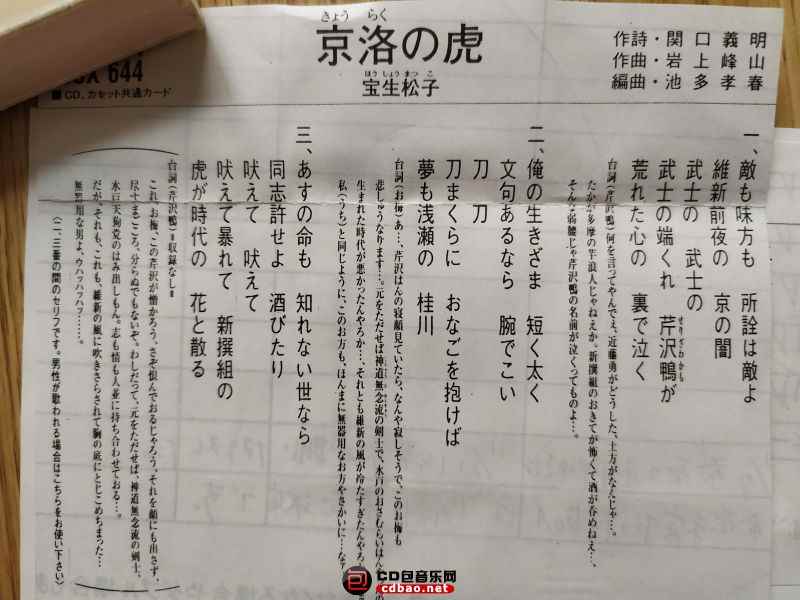 X 644
■CD、カセット共通カード
きょう らく
京洛の虎
ほうしょうまつ こ
宝生松子
作詩・関口義明
作曲・岩上峰山
編曲・池多孝春
一、敵も味方も 所詮は敵よ
維新前夜の 京の闇
武士の 武士の
武士の端くれ 芹沢鴨が
せりざわかも
荒れた心の 裏で泣く
台詞(芹沢鴨)何を言ってやんでぇ、近藤勇がどうした、土方がなんじゃ…。
たかが多摩の芋浪人じゃねえか。新撰組のおきてが怖くて酒が呑めねえ…、
そんな弱腰じゃ芹沢鴨の名前が泣くってものよ…。
二、俺の生きざま 短く太く
文句あるなら 腕でこい
刀 刀
刀まくらに おなごを抱けば
夢も浅瀬の 桂川
台詞(お梅)あ…、芹沢はんの寝顔見ていたら、なんや寂しそうで、このお梅も
悲しゅうなります…。元をただせば神道無念流の剣士で、水戸のおさむらいはん
生まれた時代が悪かったんやろか…、それとも維新の風が冷たすぎたんやろ
私(うち)と同じように、このお方も、ほんまに無器用なお方やさかいに…な
三、あすの命も 知れない世なら
同志許せよ 酒びたり
吠えて 吠えて
吠えて暴れて 新撰組の
虎が時代の 花と散る
台詞(芹沢鴨)〓収録なし〓
これ、お梅、この芹沢が憎かろう。さぞ恨んでおるじゃろう。それを顔にも出さず、
尽すまごころ、分らぬでもないぞ。わしだって、元をただせば、神道無念流の剣士、
水戸天狗党のはみ出しもん。志も情も人並に持ち合わせておる…。
だが、それも、これも、維新の風に吹きさらされて胸の底にとじこめちまった…
無器用な男よ、ウハッハッハッ……。
(二、三番の間のセリフです。男性が歌われる場合はこちらをお使い下さい)
CD包音乐网
cdbao.net